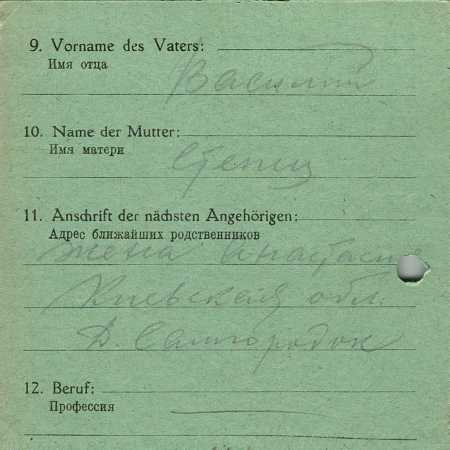 9. Vorname des Vaters:
Имя отца
Василий
10. Name der Mutter:
Имя матери
11. Anschrift der nächsten Angehörigen:
Адрес ближайших родственников
жена Анастасия
Киевская обл.
Д. Самгородок
12. Beruf:
Профессия